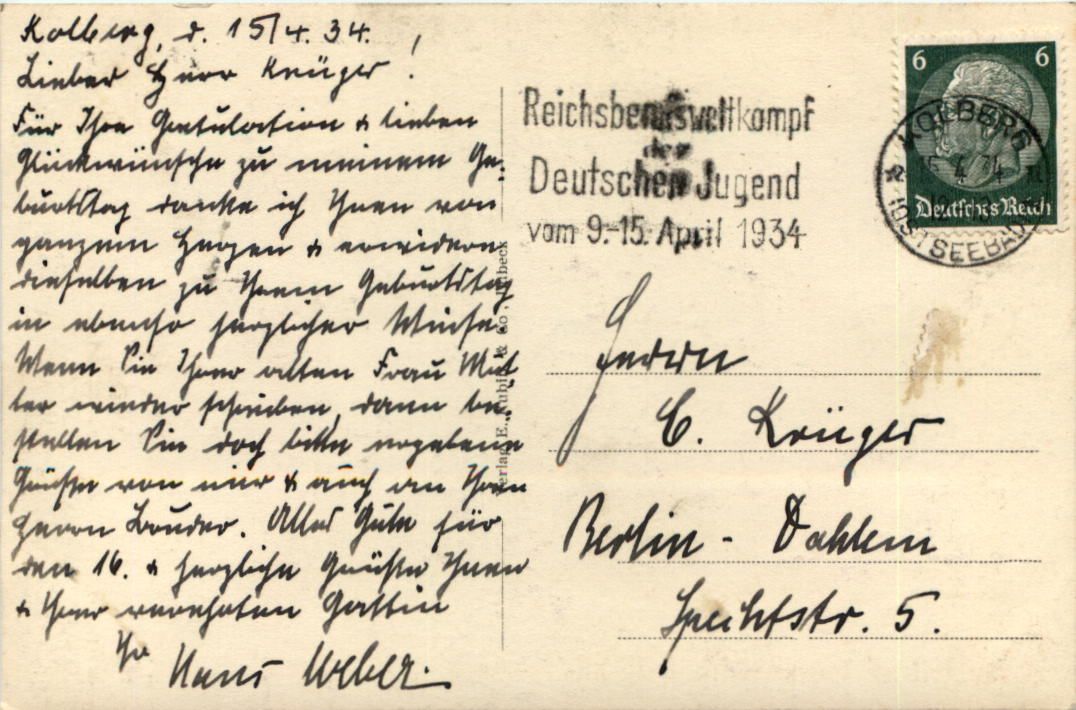 Kolberg, d. 15/4. 34.
Lieber Herr Krüger!
Für Ihre Gratulation & lieben
Glückwünsche zu meinem Ge-
burtstag danke ich Ihnen von
ganzem Herzen & erwidere
dieselben zu Ihrem Geburtstag
in ebenso herzlicher Weise.
Wenn Sie Ihrer alten Frau Mut
ter wieder schreiben, dann be-
stellen Sie doch bitte ergebene
Grüße von mir & auch an Ihren
Herrn Bruder. Alles Gute für
den 16. & herzliche Grüße Ihnen
& Ihrer verehrten Gattin
Ihr
Hans Weber.
Verlag E. & Co Lübeck
Reichsberufswettkampf
der
Deutschen Jugend
vom 9.-15. April 1934
6 6
Deutsches Reich
KOLBERG
OSTSEEBAD
Herrn
C. Krüger
Berlin - Dahlem
Spechtstr. 5.